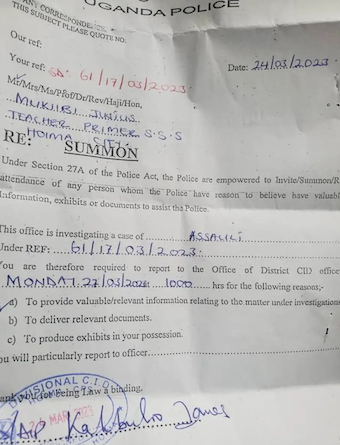 ANY CORRESPONDENCE ON
THIS SUBJECT PLEASE QUOTE NO.
UGANDA POLICE
Our ref:
Your ref: SD: 61/17/03/2023
Date: 24/03/2023
Mr/Mrs/Ms/Prof/Dr/Rev/Haji/Hon,
MUKIIBI JUNIUS
TEACHER PREMIER S.S.S
HOIMA CITY
RE: SUMMON
Under Section 27A of the Police Act, the Police are empowered to Invite/Summon/R
attendance of any person whom the Police have reason to believe have valuabl
Information, exhibits or documents to assist the Police.
This office is investigating a case of ASSAULT
Under REF: 61/17/03/2023.
You are therefore required to report to the Office of District CID office
MONDAY 27/03/2023 1000 hrs for the following reasons;-
a) To provide valuable/relevant information relating to the matter under investigations
b) To deliver relevant documents.
c) To produce exhibits in your possession.
ou will particularly report to officer
ank you for being Law a binding.
DIVISIONAL C.I.D
MAR 2023
AP James